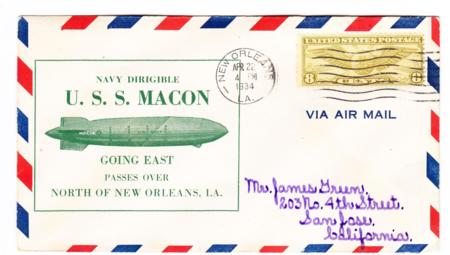 NAVY DIRIGIBLE
U. S. S. MACON
GOING EAST
PASSES OVER
NORTH OF NEW ORLEANS, LA.
NEW ORLEANS
APR 22
4 PM
1934
LA.
UNITED STATES POSTAGE
8 CENTS 8
VIA AIR MAIL
Mr. James Green,
203 No. 4th Street.
San Jose,
California.